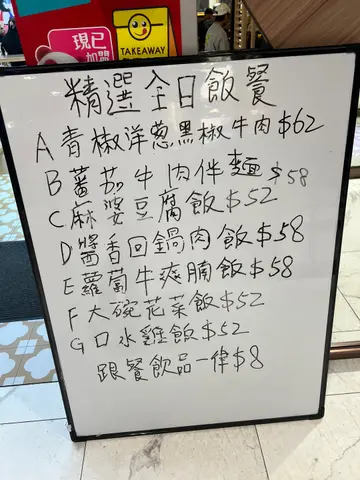 現已
加盟
TAKEAWAY
精選全日飯餐
A 青椒洋蔥黑椒牛肉 $62
B 蕃茄牛肉伴麵 $58
C 麻婆豆腐飯 $52
D 醬香回鍋肉飯 $58
E 蘿蔔牛爽腩飯 $58
F 大碗花菜飯 $52
G 口水雞飯 $52
跟餐飲品一律 $8